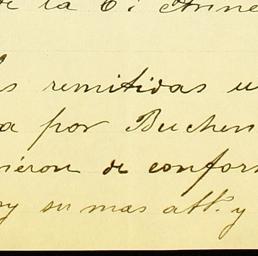 de la 6ª Arme
s remitidas u
a por Buchen
ieron de confor
y su mas att. y